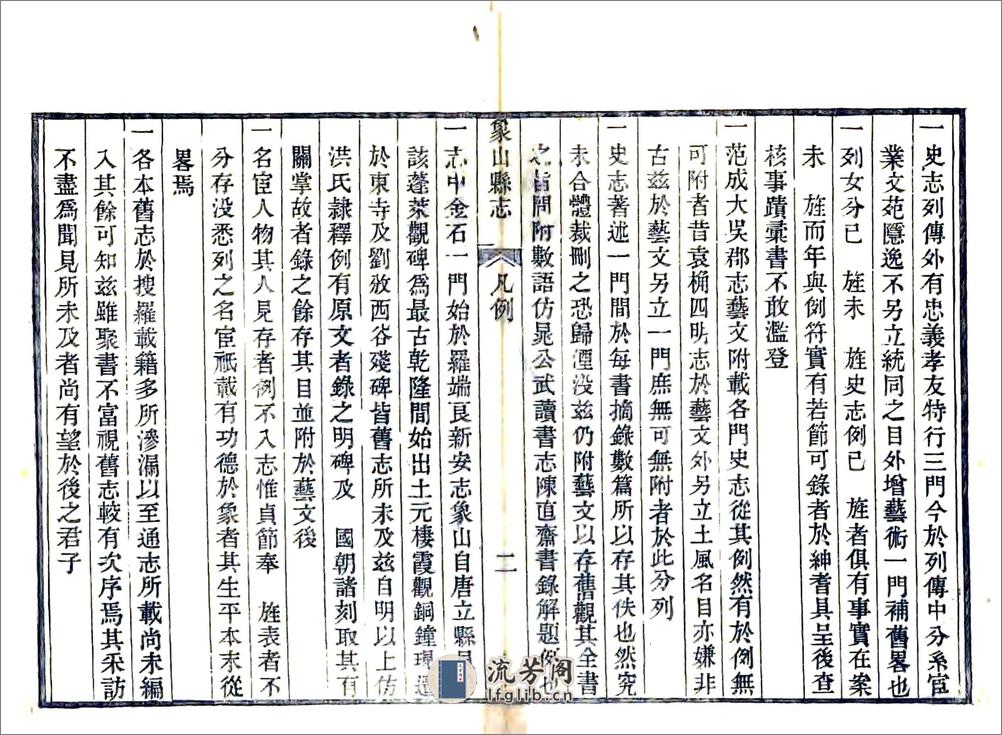 一史志列傳外有忠義孝友特行三門今於列傳中分系宦
業文苑隱逸不另立統同之目外增藝術一門補舊畧也
一列女分已　旌未　旌史志例已　旌者俱有事實在案
未　旌而年與例符實有若節可錄者於紳耆具呈後查
核事蹟彙書不敢濫登
一范成大吳郡志藝文附載各門史志從其例然有於例無
可附者昔袁桷四明志於藝文外另立土風名目亦嫌非
古兹於藝文另立一門庶無可無附者於此分列
一史志著述一門間於每書摘錄數篇所以存其佚也然究
未合體裁刪之恐歸湮没兹仍附藝文以存舊觀其全書
之旨間附數語仿晁公武讀書志陳直齋書錄解題例也
象山縣志　凡例　二
一志中金石一門始於羅端良新安志象山自唐立縣
該蓬萊觀碑爲最古乾隆間始出土元棲霞觀銅鐘現
於東寺及劉攽西谷殘碑皆舊志所未及兹自明以上仿
洪氏隸釋例有原文者錄之明碑及　國朝諸刻取其有
關掌故者錄之餘存其目並附於藝文後
一名宦人物其人見存者例不入志惟貞節奉　旌表者不
分存没悉列之名宦祇載有功德於象者其生平本末從
畧焉
一各本舊志於搜羅載籍多所滲漏以至通志所載尚未編
入其餘可知兹雖聚書不富視舊志較有次序焉其采訪
不盡爲聞見所未及者尚有望於後之君子
流芳阁
lfglib.cn